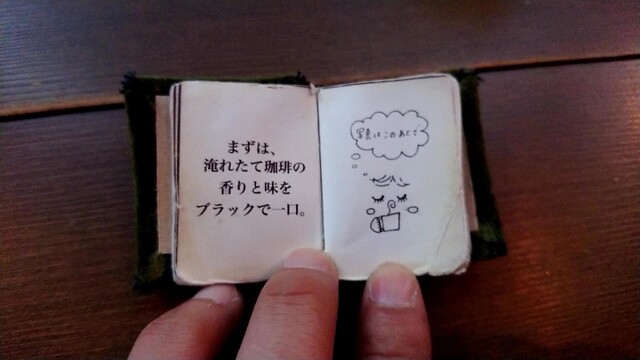 まずは、
淹れたて珈琲の
香りと味を
ブラックで一口。
写真はこのあとで